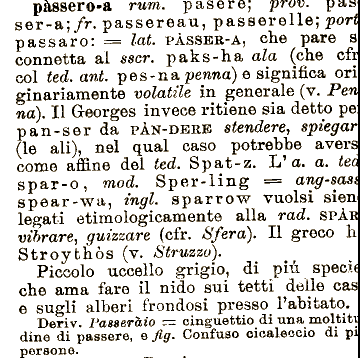 pàssero-a rum. pasere; prov. pas
ser-a; fr. passereau, passerelle; port
passaro: = lat. PÀSSER-A, che pare s
connetta al sscr. paks-ha ala (che cfr
col ted. ant. pes-na penna) e significa ori
ginariamente volatile in generale (v. Pen
na). Il Georges invece ritiene sia detto pe
pan-ser da PÀN-DERE stendere, spiegar
(le ali), nel qual caso potrebbe avers
come affine del ted. Spat-z. L'a. a. ted
spar-o, mod. Sper-ling = ang-sass
spear-wa, ingl. sparrow vuolsi sien
legati etimologicamente alla rad. SPÀR
vibrare, guizzare (cfr. Sfera). Il greco h
Stroythòs (v. Struzzo).
Piccolo uccello grigio, di piú specie
che ama fare il nido sui tetti delle cas
e sugli alberi frondosi presso l'abitato.
Deriv. Passeràio = cinguettio di una moltitu
dine di passere, e fig. Confuso cicaleccio di pi
persone.